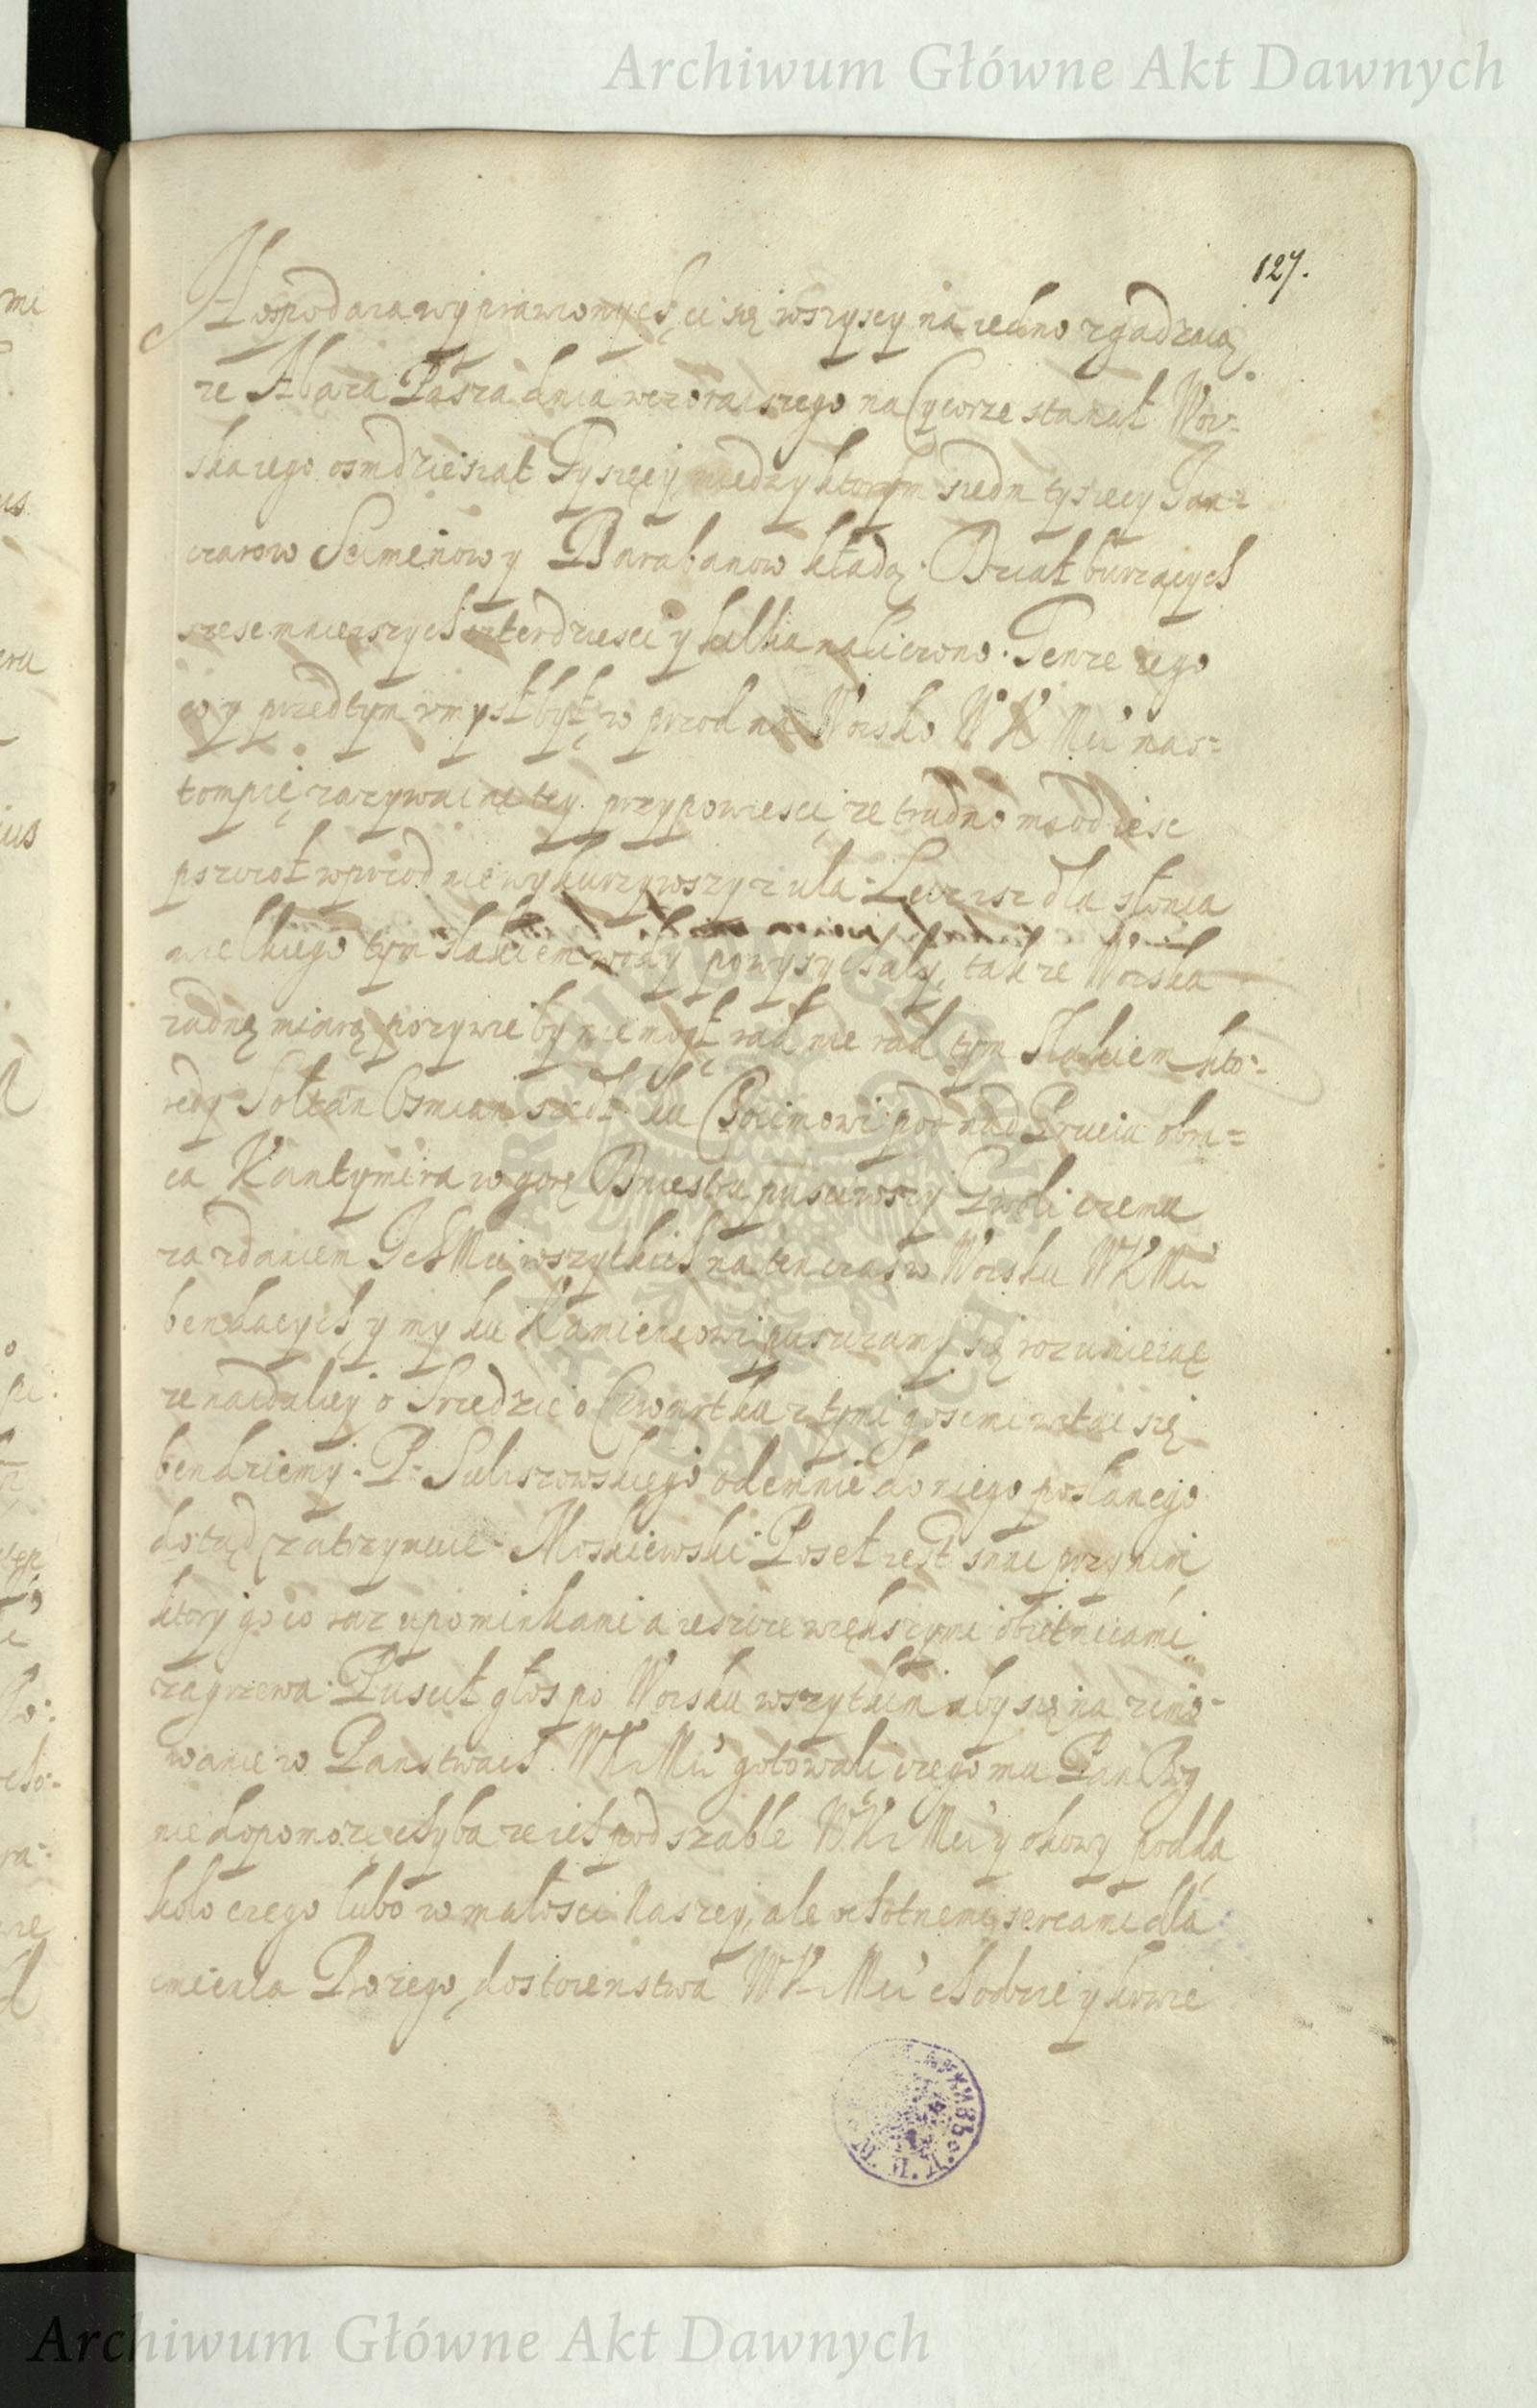 Archiwum Główne Akt Dawnych
127.
Hospodara wyprawionych, ci się wszyscy na iedno zgadzaią,
ze Abaza Pasza dnia wczoraiszego na Cycorze stanął Woy-
ska iego osmdziesiąt Tysięcy, miedzy ktorym siedm tysięcy Jan=
czarow Seimenow y Barabanow kładą. Dział burzących
szesc mnieyszych czterdziesci y kilka naliczono. Tenze iego
co y przedtym vmysł był, w przod na Woisko WKMci nas=
tompic zazywaiąc tey przypowiesci, ze trudno miod iesc
pszczoł wprzod nie wykurzywszy z ula. Lecz isz dla słonca
wielkiego tym slakiem wody powysychały, takze Woiska
zadną miarą pozywic by nie mogł, rad nie rad tym Slakiem kto-
redy Sołtan Osman szedł ku Chocimowi pod nad Prucie obra=
ca Kantymira w gorę Dniestru pusciwszy Gwoli czemu
za zdaniem IchMci wszytkich na ten czas w Woisku WKMci
bendacych, y my ku Kamiencowi puszczamy się rozumieiąc
ze naydaliey o Srzedzie o Czwartku z tymi gosćmi witac się
bendziemy. P. Suliszowskiego odemnie do niego posłanego
dotąd zatrzymuie. Moskiewski Poseł iest ... przy nim
ktory go co raz upominkami a ieszcze większymi obietnicami
zagrzewa. Puscił głos po Woisku wszytkim aby się na zimo-
wanie w Panstwach WKMci gotowali, czego mu Pan Bog
nie dopomoze, chyba ze ich pod szable WKMci y okowy podda
koło czego lubo w małosci Naszey, ale ochotnemi sercami dla
imienia Bozego, dostoienstwa WKMci chodzic y krwie
Archiwum Główne Akt Dawnych